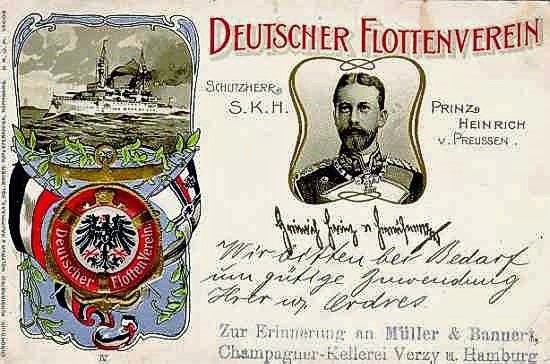 DEUTSCHER FLOTTENVEREIN
SCHUTZHERR:
S.K.H.
PRINZ
HEINRICH
V. PREUSSEN.
Heinrich Prinz v Preußen
Wir bitten bei Bedarf
um gütige Zuwendung
Ihrer w. Ordres.
Deutscher Flotten Verein
IV
Zur Erinnerung an Müller & Bannert,
Champagner-Kellerei Verzy u. Hamburg